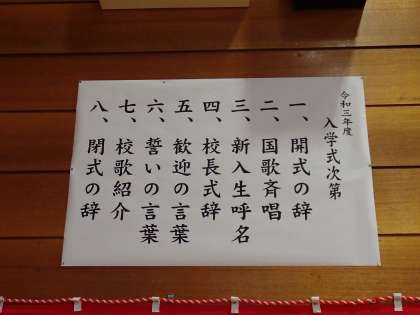 令和三年度
入学式次第
一、開式の辞
二、国歌斉唱
三、新入生呼名
四、校長式辞
五、歓迎の言葉
六、誓いの言葉
七、校歌紹介
八、閉式の辞